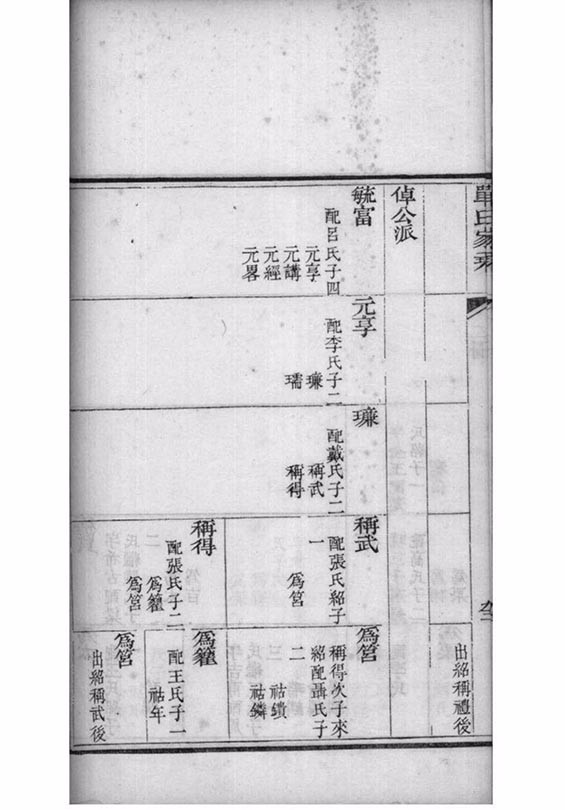 單氏家乘
出紹稱禮後
倬公派
毓富
配呂氏子四
元享
元講
元經
元畧
元享
配李氏子二
㻩
瓀
㻩
配戴氏子二
稱武
稱得
稱武
配張氏紹子
一
爲筥
稱得
配張氏子二
爲籮
爲筥
爲筥
稱得次子來
紹配聶氏子
二
祜纘
祜鏻
爲籮
配王氏子一
祜年
爲筥
出紹稱武後